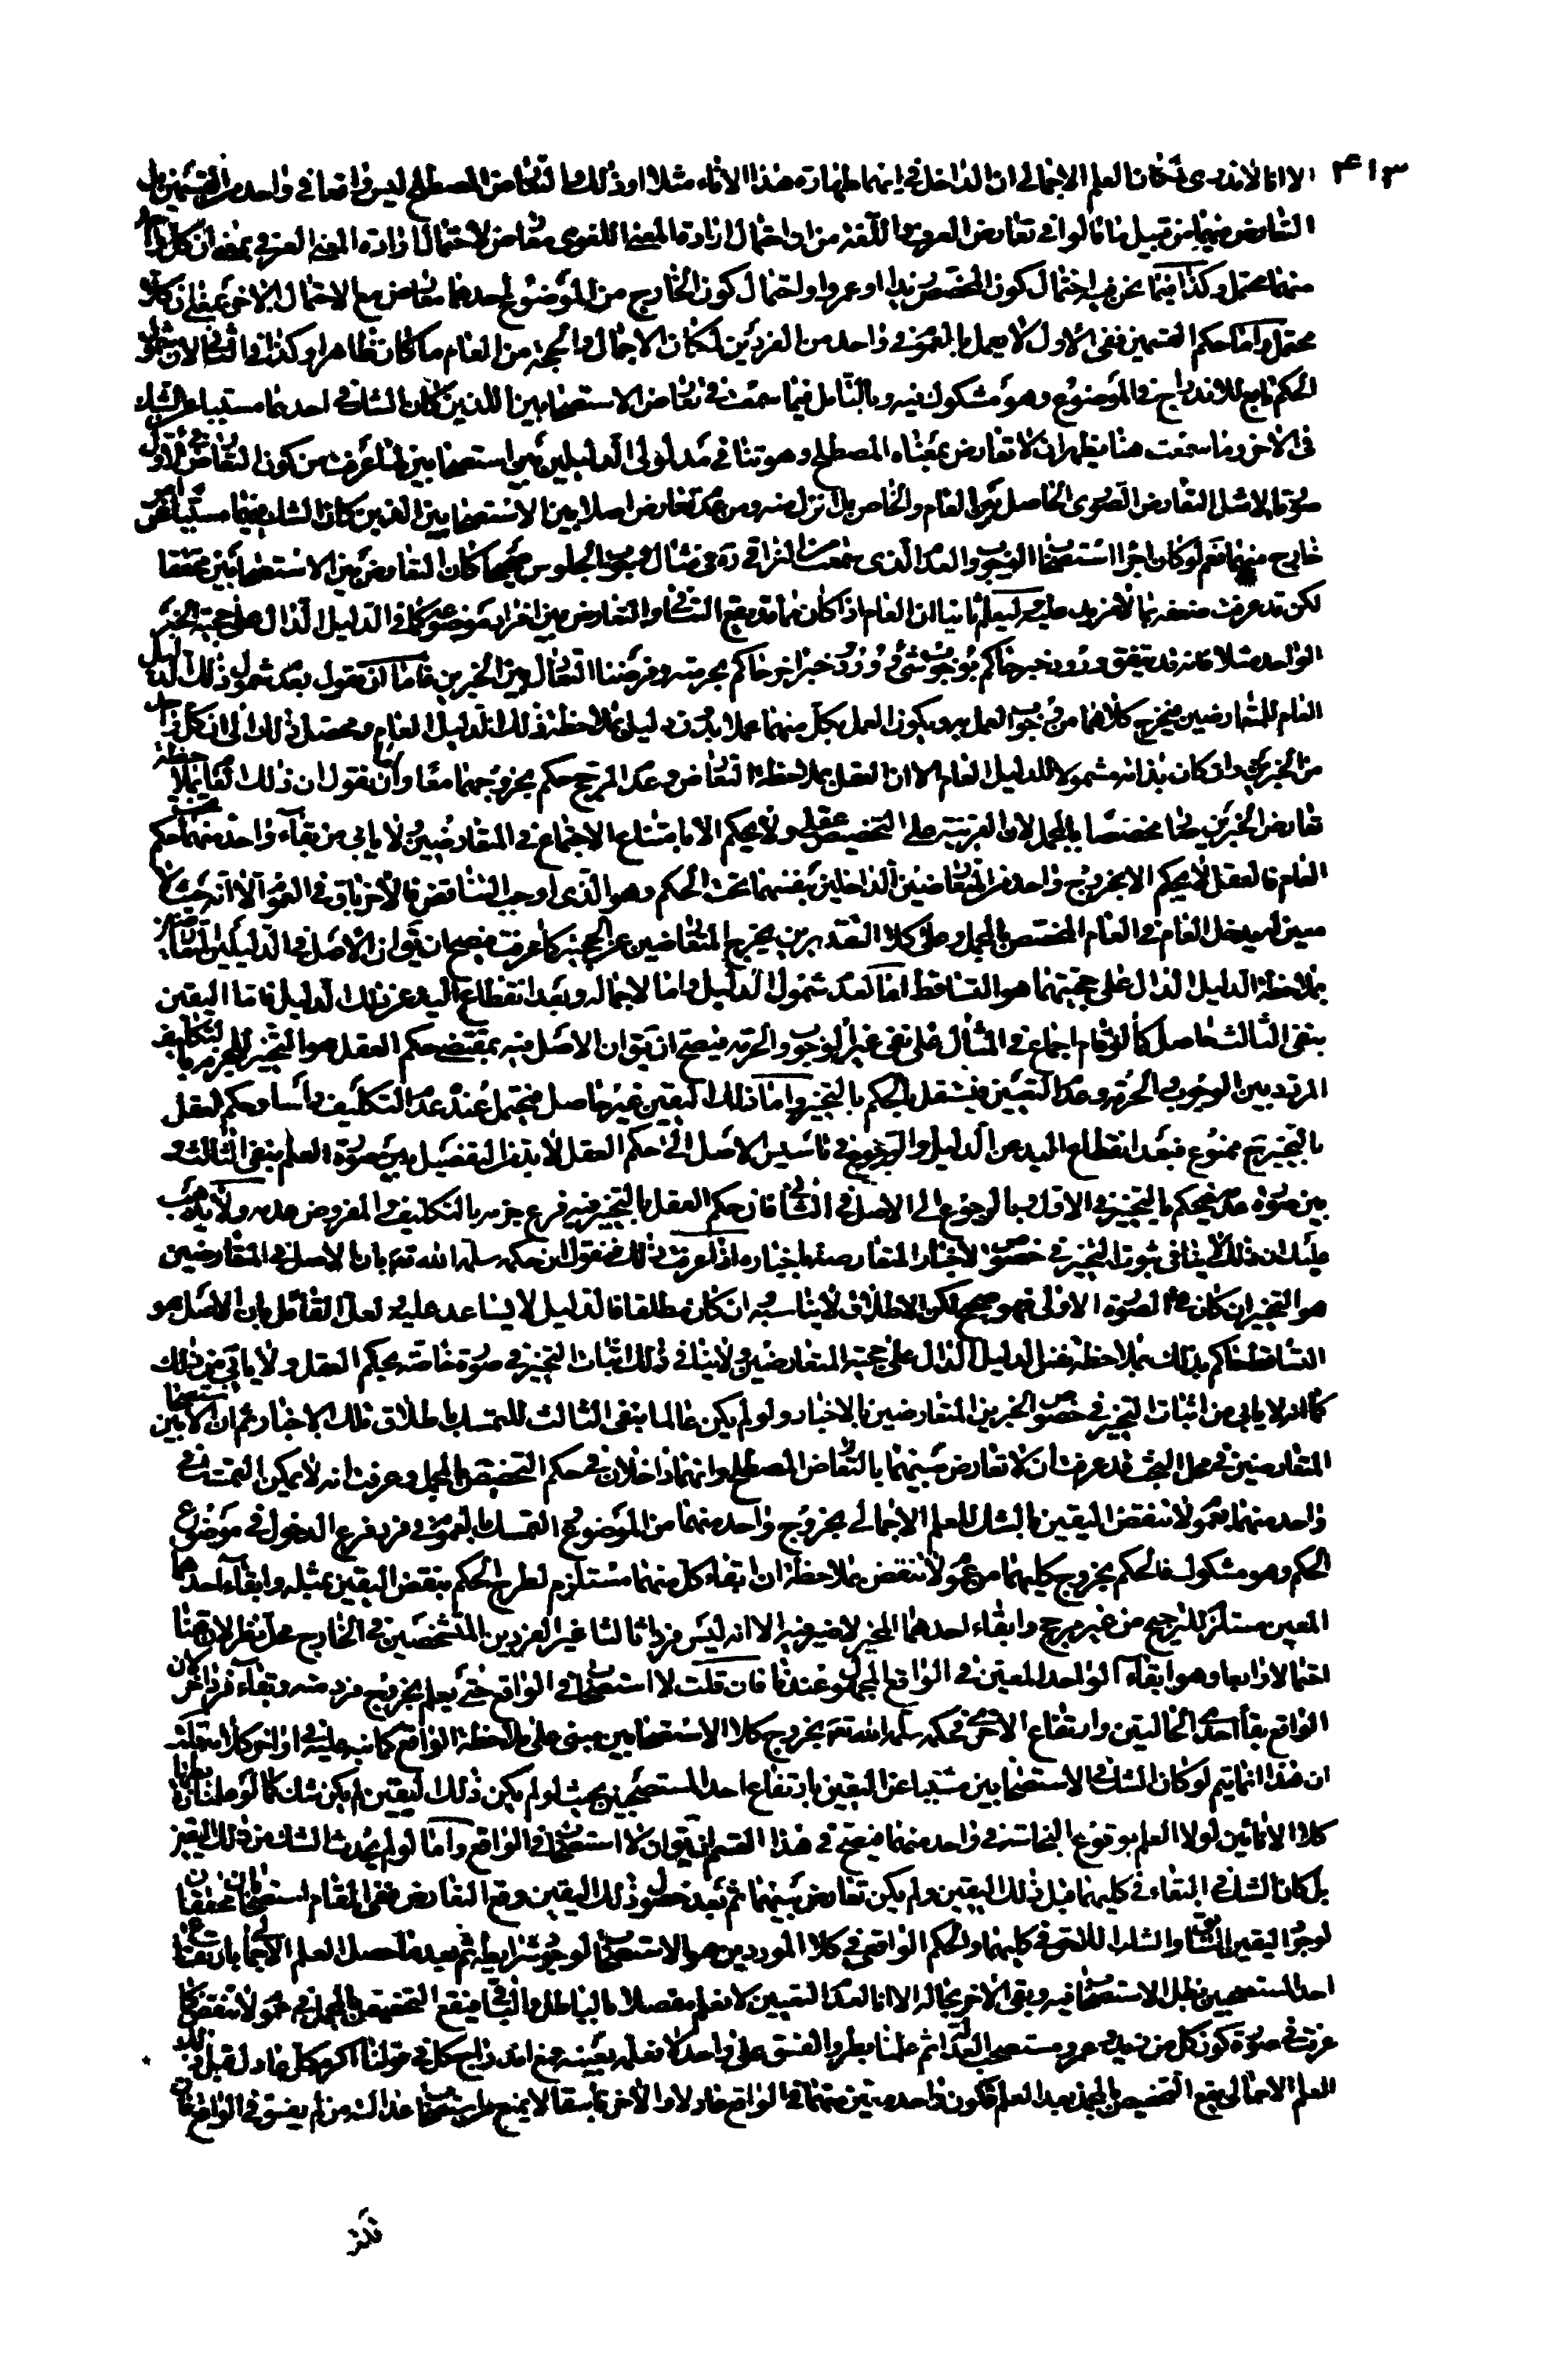 ۴۱۳
الا انا لا ندرى لمكان العلم الاجمالى ان الداخل فى ايهما طهارة هذا الاناء مثلا او ذلك والتعارض المصطلح ليس واقعا فى واحد من القسمين بل
التعارض فيهما من قبيل ما قالوا فى تعارض العرف واللغة من ان احتمال ارادة المعنى اللغوى معارض لاحتمال ارادة المعنى العرفى بمعنى ان كل واحد
منهما محتمل وكذا فيما نحن فيه احتمال كون المخصص زيدا او عمروا واحتمال كون الخارج من الموضوع احدهما معارض مع الاحتمال الاخر بمعنى ان كلا
محتمل واما حكم القسمين ففى الاول لا يعمل بالعموم فى واحد من الفردين لمكان الاجمال والحجة من العام ما كان ظاهرا وكذا فى الثانى لان شمول
الحكم تابع للاندراج فى الموضوع وهو مشكوك فيه وبالتامل فيما سمعت فى تعارض الاستصحابين اللذين كان الشك فى احدهما مسببا عن الشك
فى الاخر وما سمعت هنا يظهر ان لا تعارض بمعناه المصطلح وهو تنافى مدلولى الدليلين بين استصحابين لما عرفت من كون التعارض فى الاول
صوريا لا مثل التعارض الصورى الحاصل بين العام والخاص بل انزل منه ومن عدم تعارض اصلا بين الاستصحابين الذين كان الشك فيهما مسببا عن امر
خارج منهما نعم لو كان اجراء استصحاب الوجوب والعدم الذى سمعت من النراقى ره فى مثال وجوب الجلوس صحيحا كان التعارض بين الاستصحابين محققا
لكن قد عرفت ضعفه بما لا مزيد عليه وليعلم ثانيا ان العام اذا كان مما قد يقع التنافى والتعارض بين افراد موضوعه كما فى الدليل الدال على حجية الخبر
الواحد مثلا فانه قد يتفق ورود خبر حاكم بوجوب شىء وورود خبر اخر حاكم بحرمته وفرضنا التعادل بين الخبرين فاما ان نقول بعدم شمول ذلك الدليل
العام للمتعارضين فيخرج كلاهما من وجوب العمل به ويكون العمل بكل منهما عملا بدون دليل بملاحظة ذلك الدليل العام ومحصل ذلك الى ان كل واحد
من الخبرين وان كان بذاته مشمولا للدليل العام الا ان العقل بملاحظة التعارض وعدم المرجح حكم بخروجهما معا واما ان نقول ان ذلك العام بملاحظة
تعارض الخبرين صار مخصصا بالمجمل لان القرينة على التخصيص عقلى ولا يحكم الا بامتناع الاجتماع فى المتعارضين ولا يابى من بقاء واحد منهما تحت حكم
العام فالعقل لا يحكم الا بخروج واحد من المتعارضين الداخلين بنفسهما تحت الحكم وهو الذى اوجب التناقض فالاخر باق فى العموم الا انه حيث لا
معين له يدخل العام فى العام المخصص بالمجمل وعلى كلا التقديرين يخرج المتعارضين عن الحجية كما عرفت فيصح ان يق ان الاصل فى الدليلين المتعارضين
بملاحظة الدليل الدال على حجيتهما هو التساقط اما لعدم شمول الدليل واما لاجماله وبعد انقطاع اليد عن ذلك الدليل فاما اليقين
بنفى الثالث حاصل كما لو قام اجماع فى المثال على نفى غير الوجوب والحرمة فيصح ان يق ان الاصل فيه بمقتضى حكم العقل هو التخيير للجزم بالتكليف
المردد بين الوجوب والحرمة وعدم التعيين فيستقل بالحكم بالتخيير واما ذلك اليقين غير حاصل فيحتمل عنده عدم التكليف راسا وحكم العقل
بالتخيير ح ممنوع فبعد انقطاع اليد من الدليل والرجوع فى تاسيس الاصل الى حكم العقل لا بد فى التفصيل بين صورة العلم بنفى الثالث و
بين صورة عدمه فيحكم بالتخيير فى الاول وبالرجوع الى الاصل فى الثانى فان حكم العقل بالتخيير فيه فرع جزمه بالتكليف والمفروض عدمه ولا يذهب
عليك ان ذلك لا ينافى ثبوت التخيير فى خصوص الاخبار المتعارضة باخباره اذا عرفت ذلك فنقول ان حكمه سلمه الله تعه بان الاصل فى المتعارضين
هو التخيير ان كان فى الصورة الاولى فهو صحيح لكن الاطلاق لا يناسبه وان كان مطلقا فالدليل لا يساعد عليه ولعل القائل بان الاصل هو
التساقط حاكم بذلك بملاحظة نفس الدليل الدال على حجية المتعارضين ولا ينافى ذلك اثبات التخيير فى صورة خاصة بحكم العقل ولا يابى من ذلك
كما انه لا يابى من اثبات التخيير فى خصوص الخبرين المتعارضين بالاخبار ولو لم يكن عالما بنفى الثالث للتمسك باطلاق تلك الاخبار ثم ان الاستصحابين
المتعارضين فى محل البحث قد عرفت ان لا تعارض بينهما بالتعارض المصطلح وانهما داخلان فى حكم التخصيص بالمجمل وعرفت انه لا يمكن التمسك فى
واحد منهما بعموم لا تنقض اليقين بالشك للعلم الاجمالى بخروج واحد منهما من الموضوع والتمسك بالعموم فى فرد فرع الدخول فى موضوع
الحكم وهو مشكوك فالحكم بخروج كليهما من عموم لا تنقض بملاحظة ان ابقاء كل منهما مستلزم لطرح الحكم بنقض اليقين بمثله وابقاء احدهما
المعين مستلزم للترجيح من غير مرجح وابقاء احدهما المخير لا ضير فيه الا انه ليس فردا ثالثا غير الفردين المتشخصين فى الخارج محل نظر لان هنا
احتمالا رابعا وهو ابقاء الواحد المعين فى الواقع المجهول عندنا فان قلت لا استصحاب فى الواقع حتى يعلم بخروج فرد منه وبقاء فرد اخر لان
الواقع بقاء احدى الحالتين وارتفاع الاخرى فحكمه سلمه الله تعه بخروج كلا الاستصحابين مبنى على ملاحظة الواقع كما نبه عليه فى اواخر كلامه قلت
ان هذا انما يتم لو كان الشك فى الاستصحابين مسببا عن اليقين بارتفاع احد المستصحبين بحيث لو لم يكن ذلك اليقين لم يكن شك كما لو علمنا بطهارة
كلا الانائين لولا العلم بوقوع النجاسة فى واحد منهما فيصح فى هذا القسم ان يق ان لا استصحاب فى الواقع واما لو لم يحدث الشك من ذلك اليقين
بل كان الشك فى البقاء فى كليهما قبل ذلك اليقين ولم يكن تعارض بينهما ثم بعد حصول ذلك اليقين وقع التعارض ففى المقام استصحابان محققان
لوجود اليقين السابق والشك اللاحق فى كليهما والحكم الواقعى فى كلا الموردين هو الاستصحاب لوجود شرايطه ثم بعد ما حصل العلم الاجمالى بارتفاع
احد المستصحبين بطل الاستصحاب فيه وبقى الاخر بحاله الا انا لعدم التعيين لا نعلم مفصلا بالباطل والباقى فيقع التخصيص بالمجمل فى عموم لا تنقض كما
عرفت فى صورة كون كل من زيد وعمرو مستصحب العدالة ثم علمنا بطرو الفسق على واحد لا نعلمه بعينه فمع اندراج كل فى قولنا اكرم كل عادل قبل ذلك
العلم الاجمالى يقع التخصيص بالمجمل بعد العلم فكون واحد معين منهما فى الواقع عادلا والاخر فاسقا لا يمنع عن استصحاب عدالة من لم يفسق فى الواقع فان